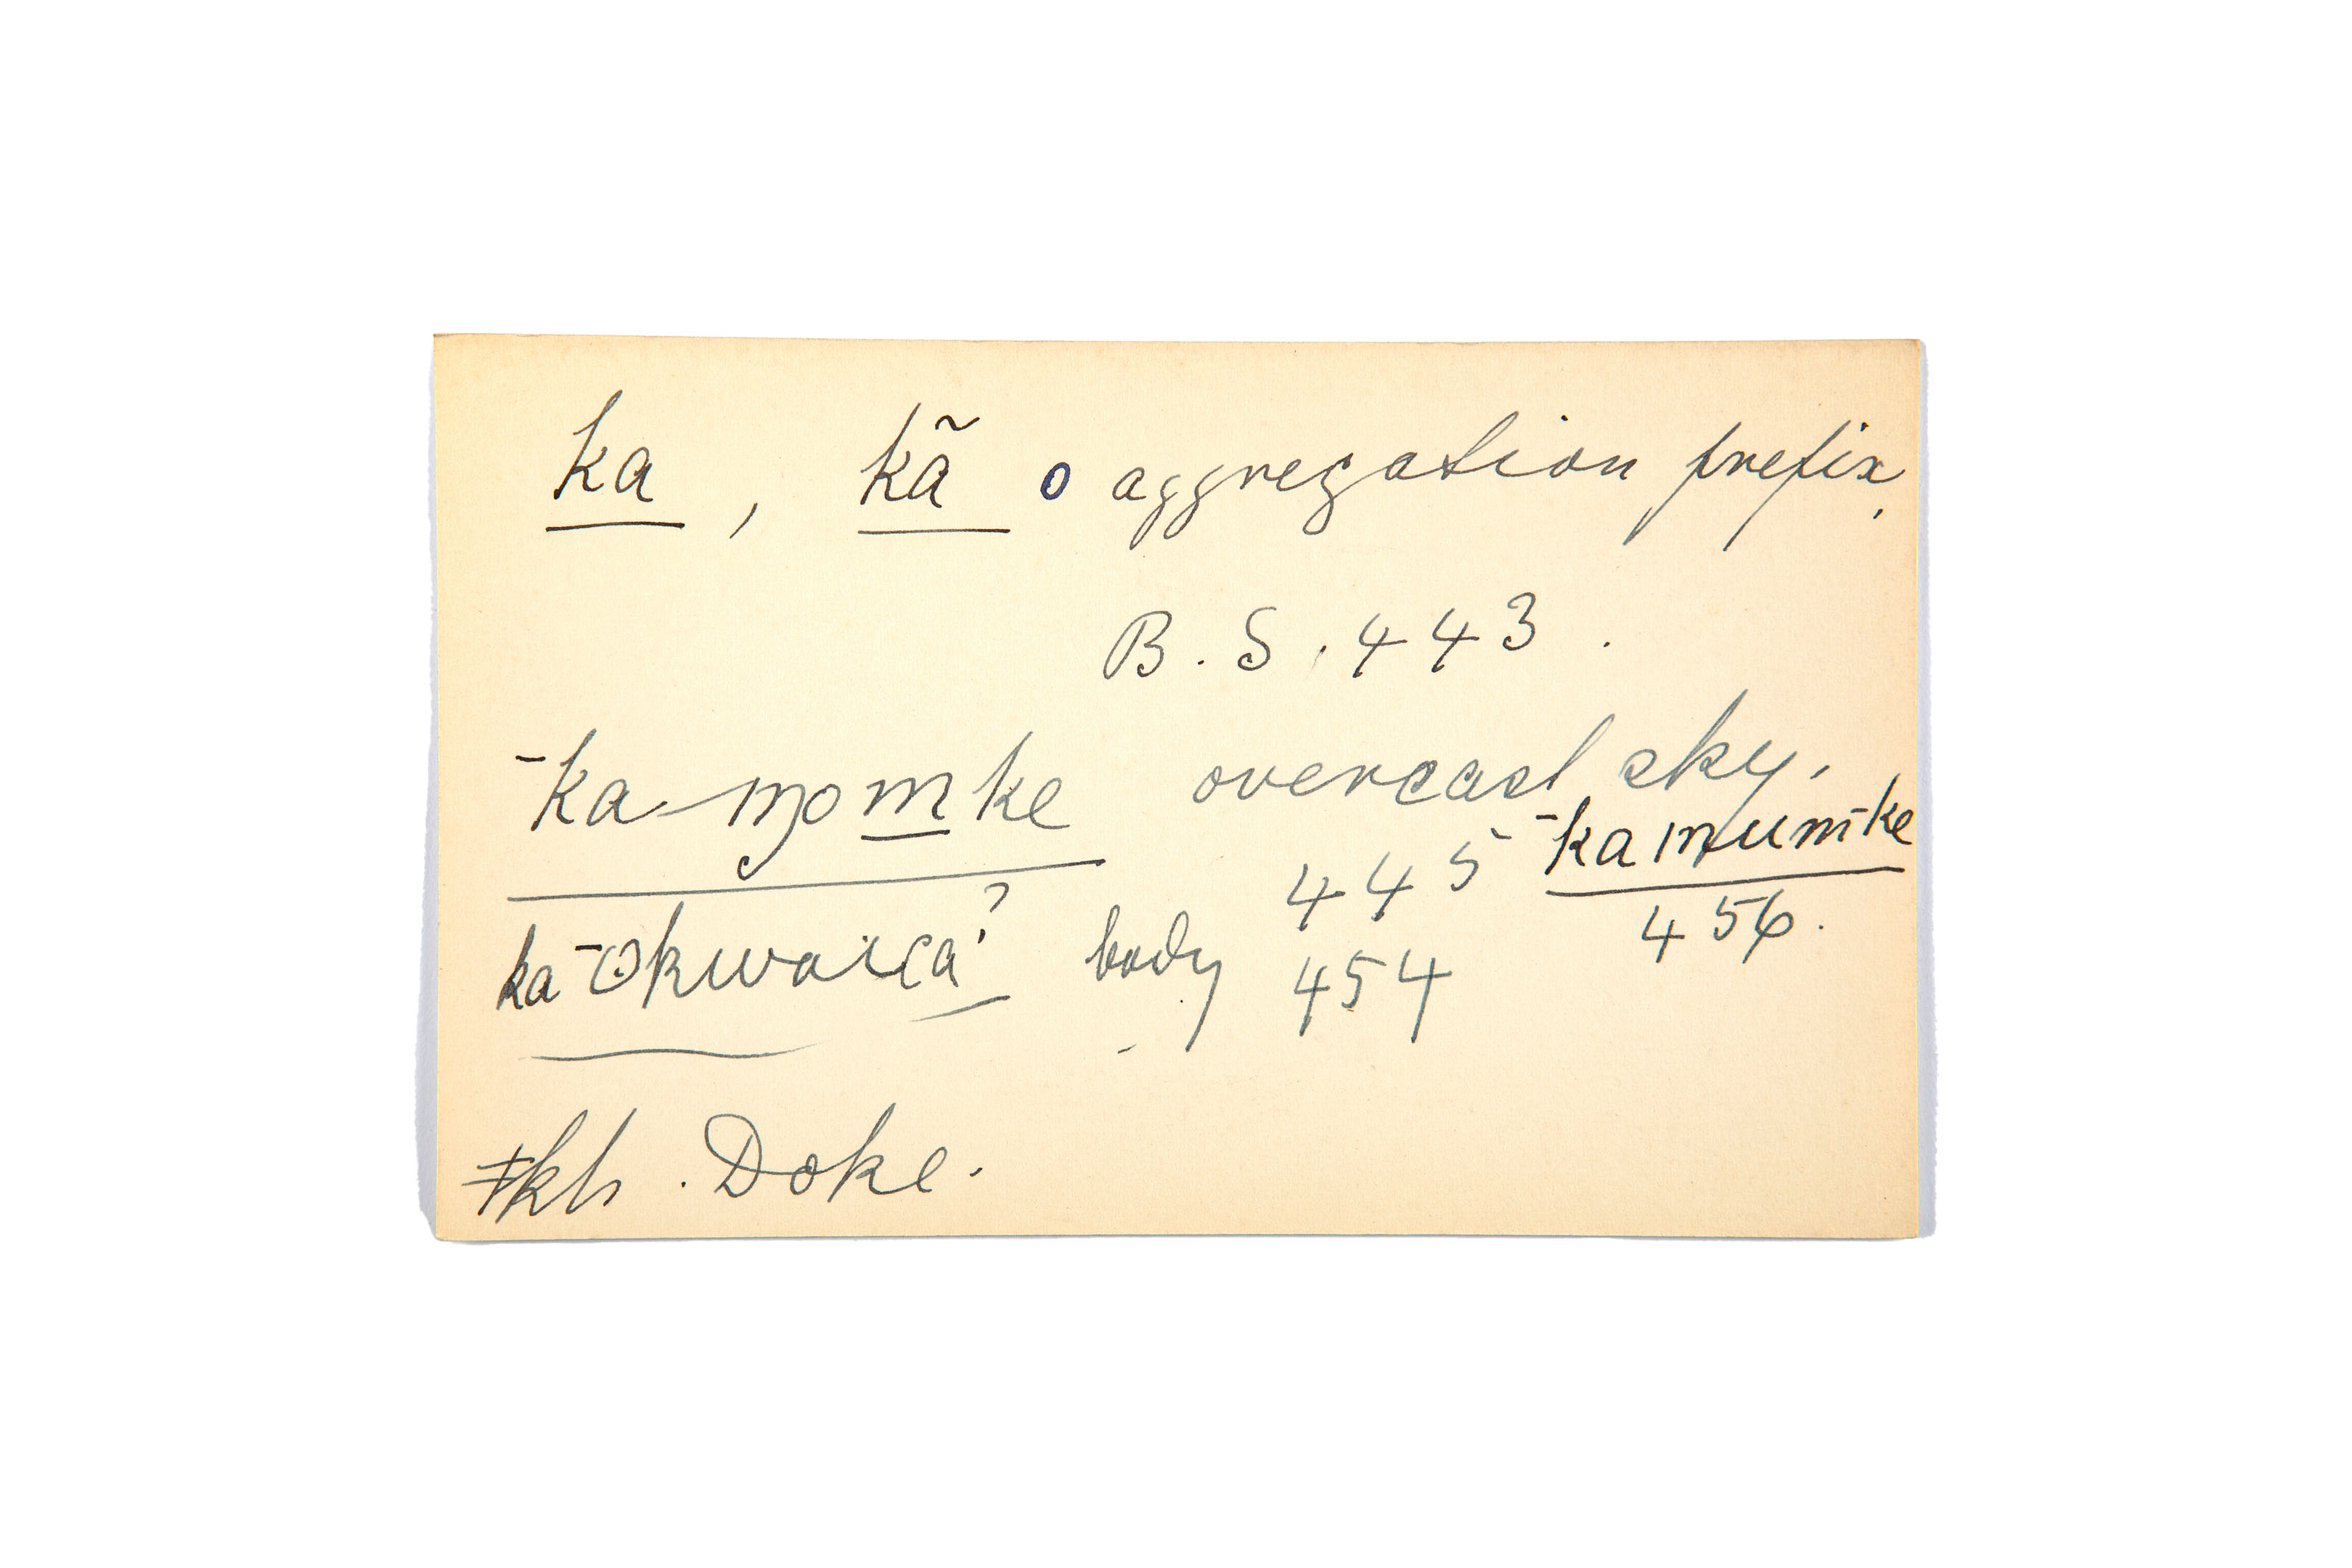 ka , kã o aggregation prefix,
B. S. 443.
‾ka-ŋo m̲ ke overcast sky,
445 ‾kamum‾ke
456.
body 454
ǂkh. Doke.